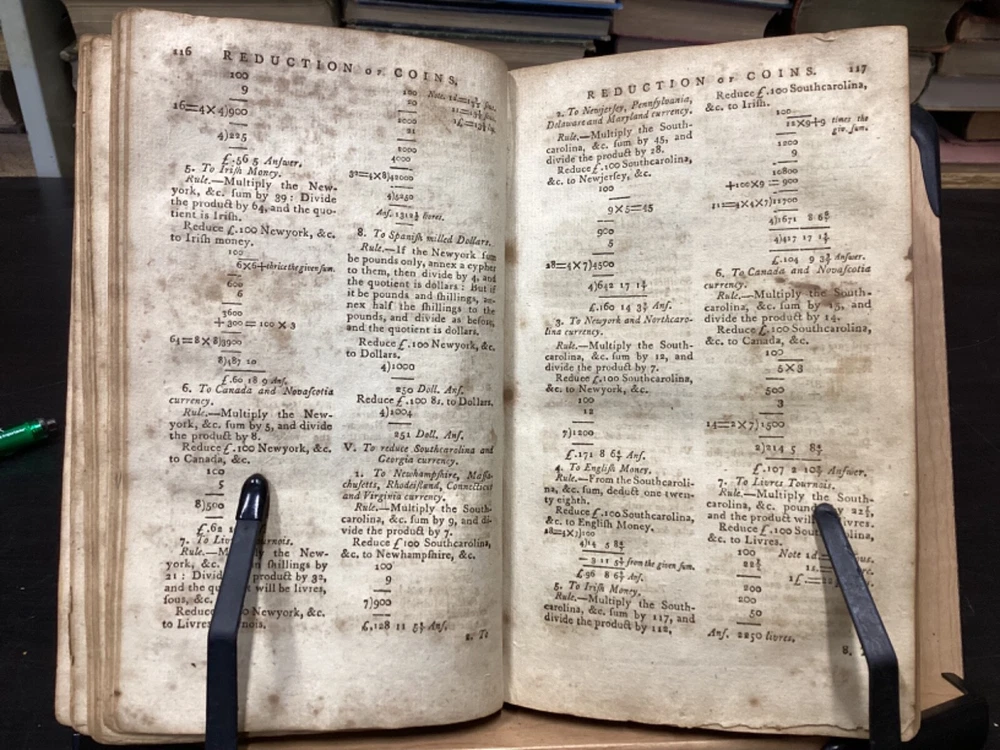 116 REDUCTION OF COINS.
100
9
16=4×4)900
4)225
£.56 5 Answer.
5. To Irish Money.
Rule.—Multiply the New-
york, &c. sum by 39: Divide
the product by 64, and the quo-
tient is Irish.
Reduce £.100 Newyork, &c.
to Irish money.
100
6×6+thrice the given sum.
600
6
3600
+300=100×3
64=8×8)3900
8)487 10
£.60 18 9 Ans.
6. To Canada and Novascotia
currency.
Rule.—Multiply the New-
york, &c. sum by 5, and divide
the product by 8.
Reduce £.100 Newyork, &c.
to Canada, &c.
100
5
8)500
£.62
7. To
Rule. the New-
york, &c. shillings by
21: product by 32,
and the will be livres,
sous, &c.
Reduce Newyork, &c.
to
100
20
2000
21
2000
4000
32=4×8)42000
4)5250
Ans. 1312½ livres.
8. To Spanish milled Dollars.
Rule.—If the Newyork sum
be pounds only, annex a cypher
to them, then divide by 4, and
the quotient is dollars: But if
it be pounds and shillings, an-
nex half the shillings to the
pounds, and divide as before,
and the quotient is dollars.
Reduce £.100 Newyork, &c.
to Dollars.
4)1000
250 Doll. Ans.
Reduce £.100 8s. to Dollars.
4)1004
251 Doll. Ans.
V. To reduce Southcarolina and
Georgia currency.
1. To Newhampshire, Massa-
chusetts, Rhodeisland, Connecticut
and Virginia currency.
Rule.—Multiply the South-
carolina, &c. sum by 9, and di-
vide the product by 7.
Reduce £100 Southcarolina,
&c. to Newhampshire, &c.
100
9
7)900
£.128 11 5⅐ Ans.
2. To
REDUCTION OF COINS. 117
2. To Newjersey, Pennsylvania,
Delaware and Maryland currency.
Rule.—Multiply the South-
carolina, &c. sum by 45, and
divide the product by 28.
Reduce £.100 Southcarolina,
&c. to Newjersey, &c.
100
9×5=45
900
5
28=4×7)4500
4)642 17 1⅐
£.160 14 3³⁄₇ Ans.
3. To Newyork and Northcaro-
lina currency.
Rule.—Multiply the South-
carolina, &c. sum by 12, and
divide the product by 7.
Reduce £.100 Southcarolina,
&c. to Newyork, &c.
100
12
7)1200
£.171 8 6⁶⁄₇ Ans.
4. To English Money.
Rule.—From the Southcaroli-
na, &c. sum, deduct one twen-
ty eighth.
Reduce £.100 Southcarolina,
&c. to English Money.
28=4×7)100
4)14 5 8⁴⁄₇
— 3 11 5⅐ from the given sum.
£.96 8 6⁶⁄₇ Ans.
5. To Irish Money.
Rule.—Multiply the South-
carolina, &c. sum by 117, and
divide the product by 112,
Reduce £.100 Southcarolina,
&c. to Irish.
100
12×9+9 times the
giv. sum.
1200
9
10800
+100×9 = 900
)11700
4)1671 8 6⁶⁄₇
4)417 17 1⁵⁄₇
£.104 9 3³⁄₇ Answer.
6. To Canada and Novascotia
currency.
Rule.—Multiply the South-
carolina, &c. sum by 15, and
divide the product by 14.
Reduce £.100 Southcarolina,
&c. to Canada, &c.
100
5×3
500
3
14=2×7)1500
2)214 5 8⁴⁄₇
£.107 2 10²⁄₇ Answer.
7. To Livres Tournois.
Rule.—Multiply the South-
carolina, &c. by 22½,
and the product will livres.
Reduce £.100
&c. to Livres.
100
22½
200
200
50
Ans. 2250 livres.
Note 1d.=